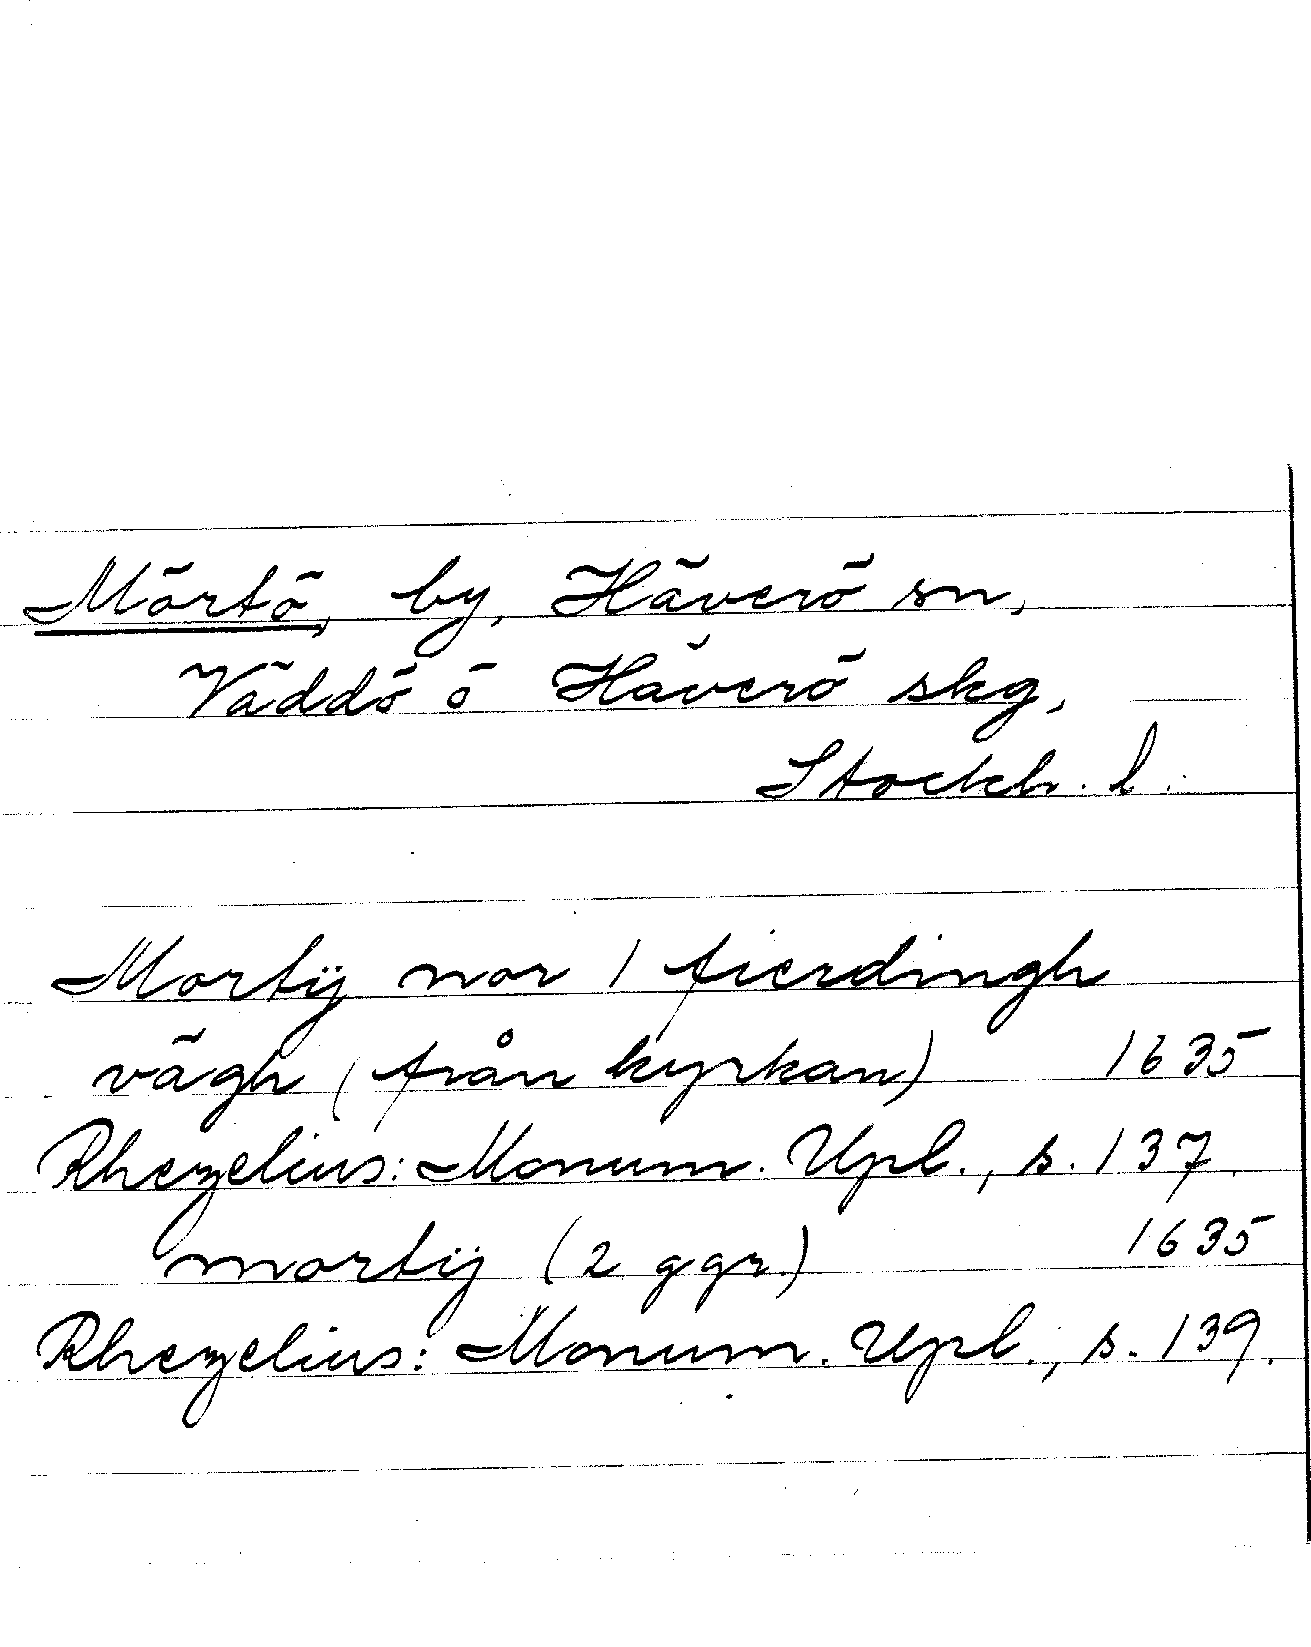 Mörtö, by, Häverö sn,
Väddö o Häverö skg,
Stockh. l.
Mortÿ nor 1 fierdingh
vägh (från kyrkan) 1635
Rhezelius: Monum. Upl., s. 137.
mortÿ (2 ggr.) 1635
Rhezelius: Monum. Upl., s. 139.